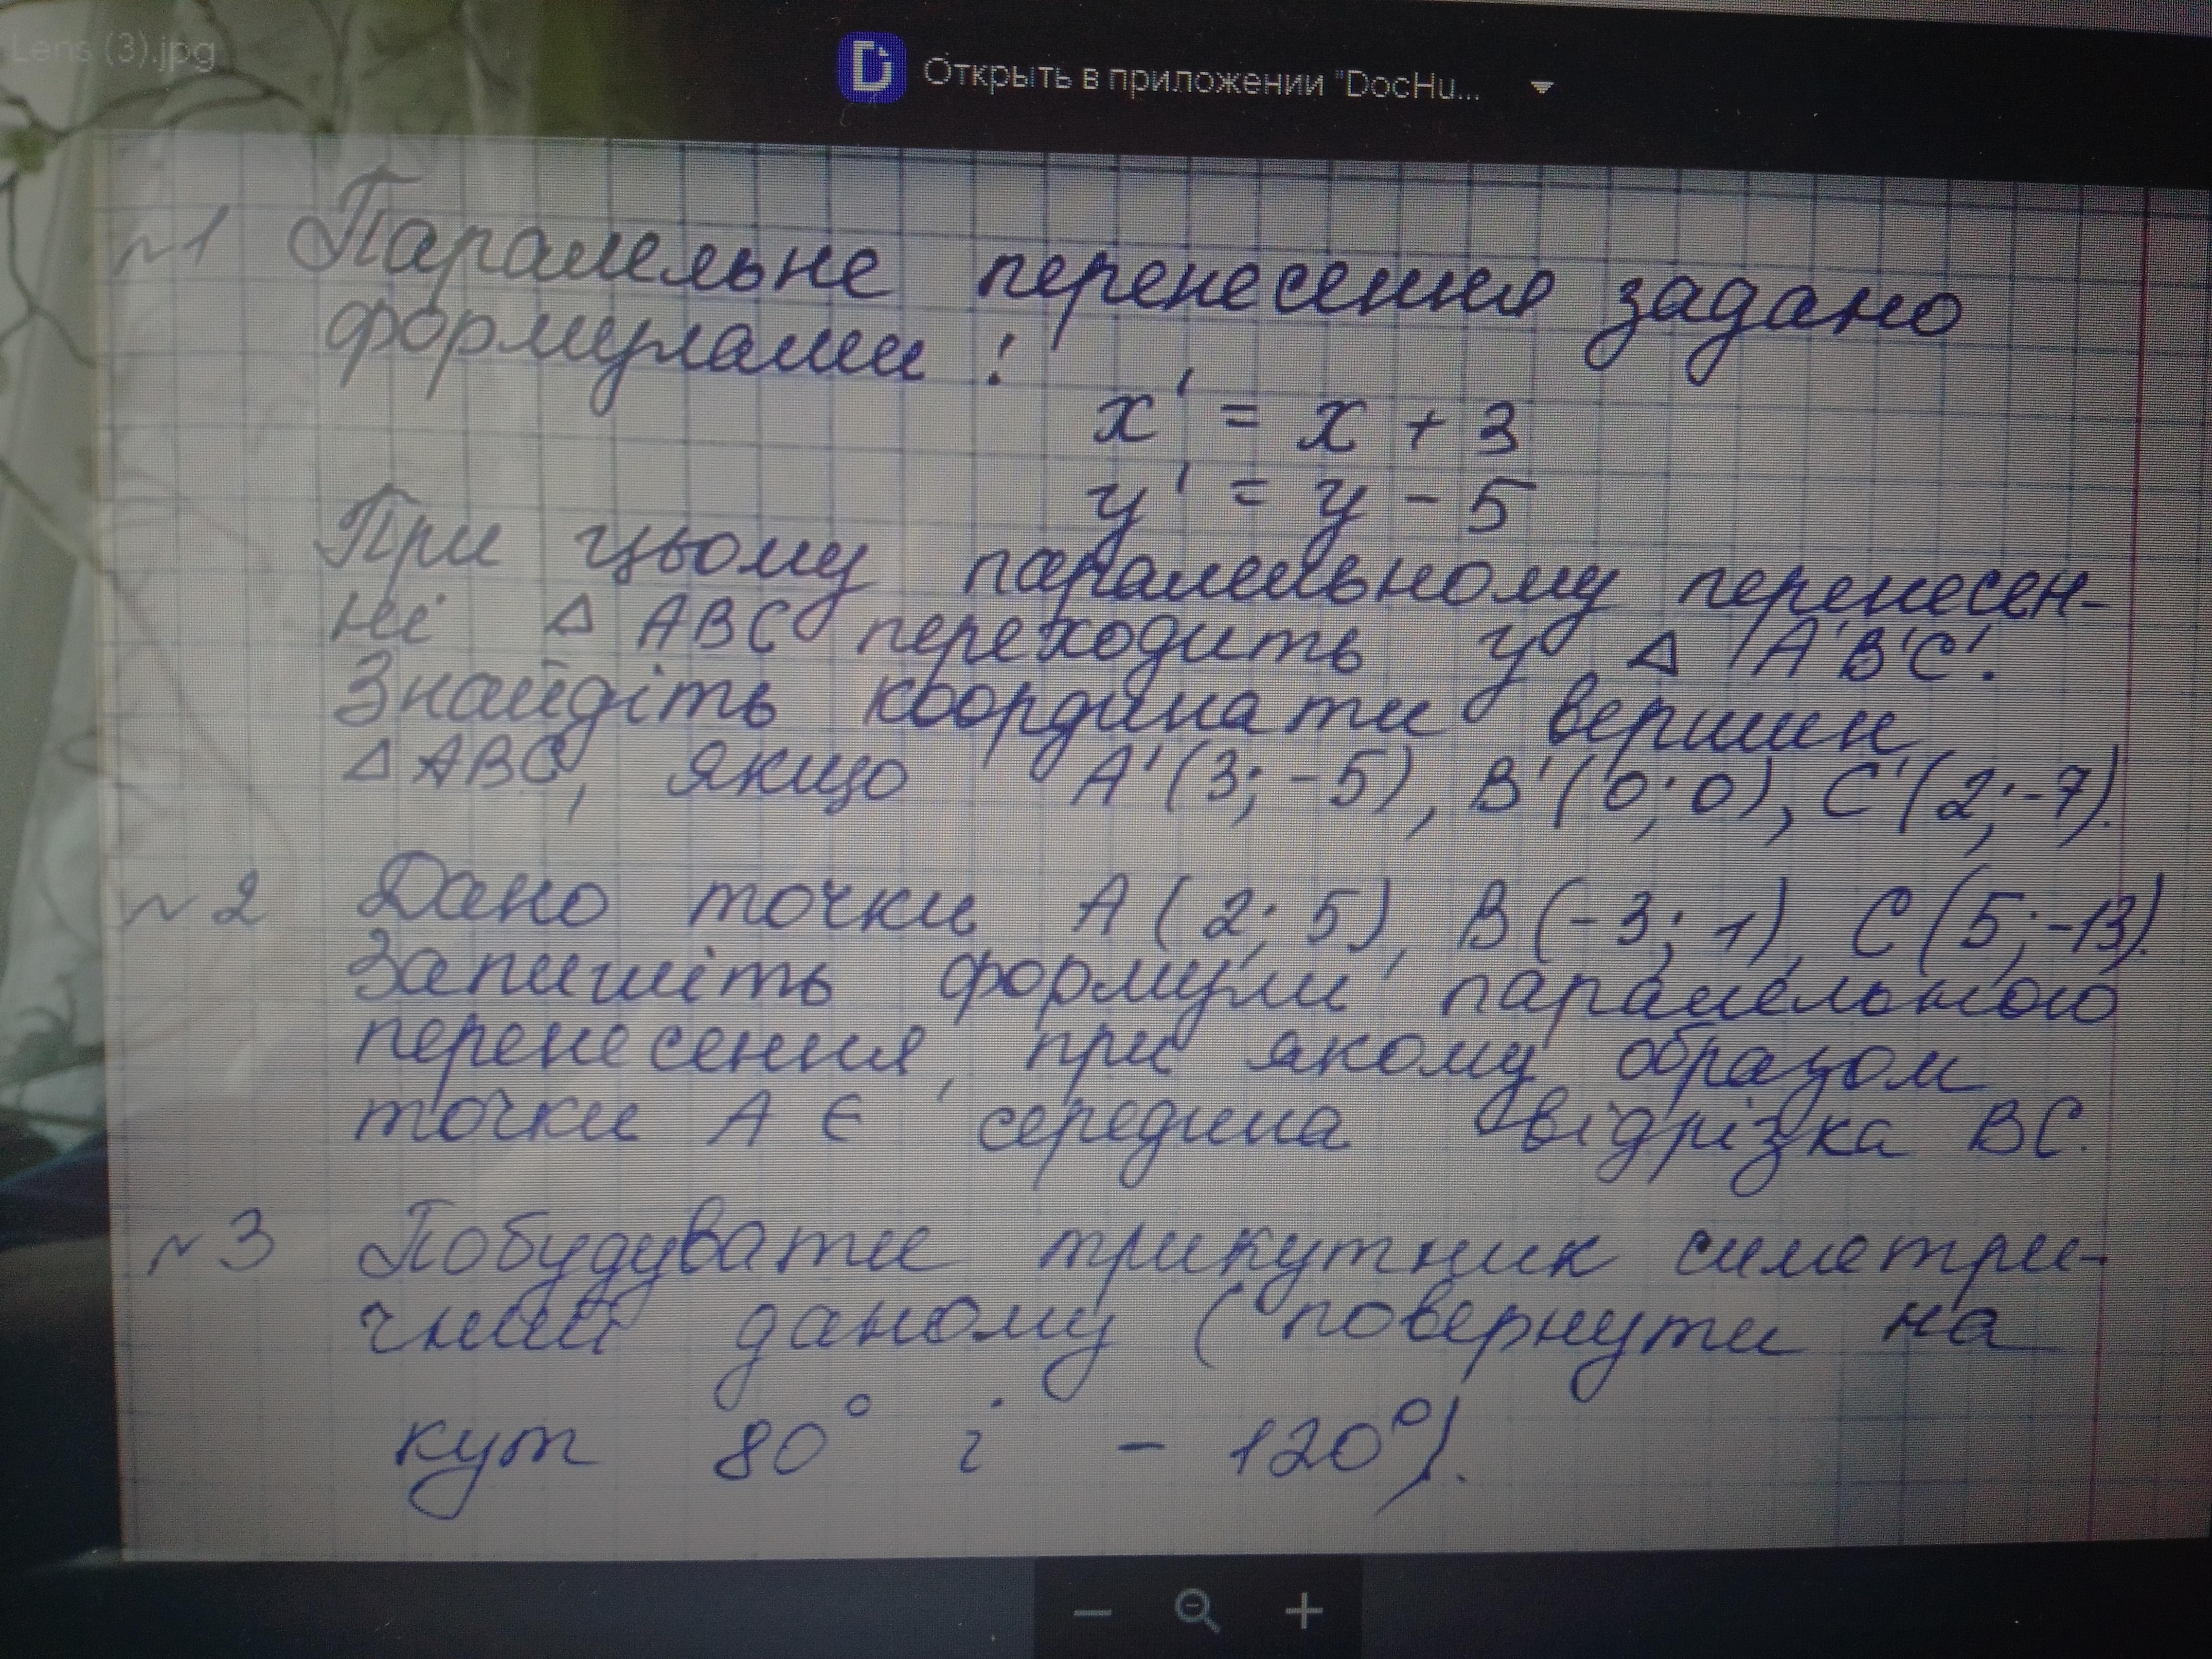 Lens (3).jpg
Открыть в приложении "DocHu...
№1 Паралельне перенесення задано
формулами:
x' = x + 3
y' = y - 5
При цьому паралельному перенесен-
ні △ ABC переходить у △ A'B'C'.
Знайдіть координати вершин
△ABC, якщо A'(3; -5), B'(0; 0), C'(2; -7).
№2 Дано точки A(2; 5), B(-3; 1), C(5; -13).
Запишіть формули паралельного
перенесення, при якому образом
точки A є середина відрізка BC.
№3 Побудувати трикутник симетри-
чний даному (повернути на
кут 80° і - 120°).